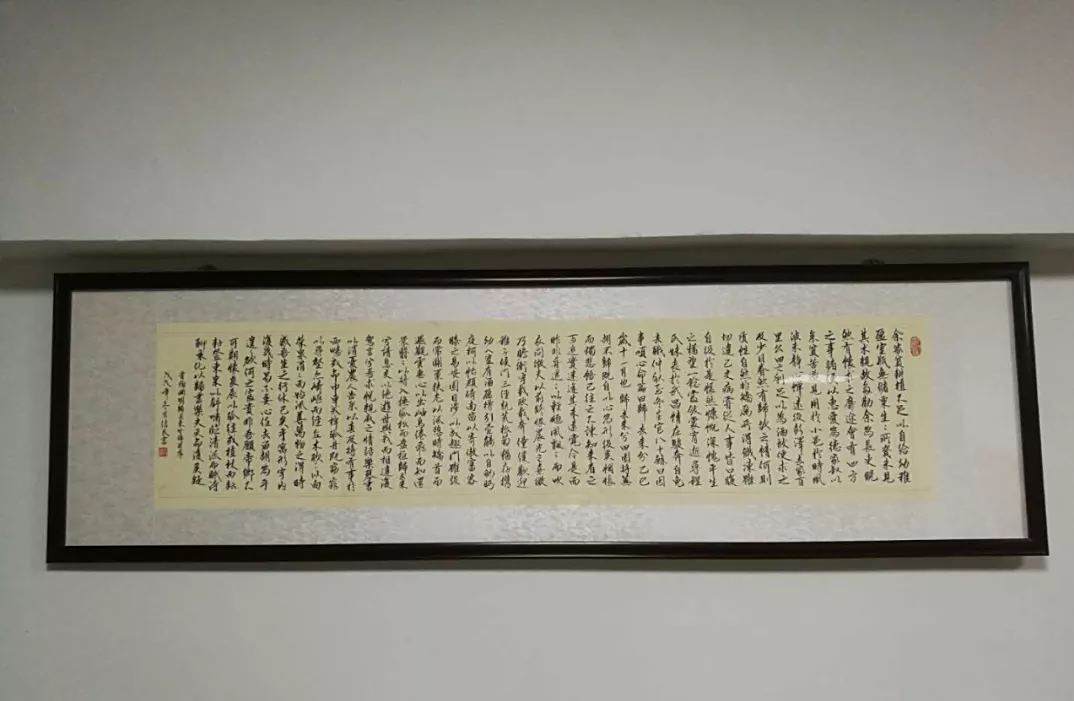 余家貧耕植不足以自給幼稚
盈室瓶無儲粟生生所資未見
其術親故多勸余為長吏脫
然有懷求之靡途會有四方
之事諸侯以惠愛為德家叔以
余貧苦遂見用於小邑於時風
波未靜心憚遠役彭澤去家百
里公田之利足以為酒故便求之
及少日眷然有歸歟之情何則
質性自然非矯厲所得飢凍雖
切違己交病嘗從人事皆口腹
自役於是悵然慷慨深愧平生
之志猶望一稔當斂裳宵逝尋程
氏妹喪於武昌情在駿奔自免
去職仲秋至冬在官八十餘日因
事順心命篇曰歸去來兮乙巳
歲十一月也歸去來兮田園將蕪
胡不歸既自以心為形役奚惆悵
而獨悲悟已往之不諫知來者之
可追實迷途其未遠覺今是而
昨非舟遙遙以輕颺風飄飄而吹
衣問征夫以前路恨晨光之熹微
乃瞻衡宇載欣載奔僮僕歡迎
稚子候門三徑就荒松菊猶存攜
幼入室有酒盈樽引壺觴以自酌眄
庭柯以怡顏倚南窗以寄傲審容
膝之易安園日涉以成趣門雖設
而常關策扶老以流憩時矯首而
遐觀雲無心以出岫鳥倦飛而知還
景翳翳以將入撫孤松而盤桓歸去來
兮請息交以絕遊世與我而相違復
駕言兮焉求悅親戚之情話樂琴書
以消憂農人告余以春及將有事於
西疇或命巾車或棹孤舟既窈窕
以尋壑亦崎嶇而經丘木欣欣以向
榮泉涓涓而始流善萬物之得時
感吾生之行休已矣乎寓形宇內
復幾時曷不委心任去留胡為乎
遑遑欲何之富貴非吾願帝鄉不
可期懷良辰以孤往或植杖而耘
耔登東皋以舒嘯臨清流而賦詩
聊乘化以歸盡樂夫天命復奚疑
書陶淵明歸去來兮辭
戊戌年